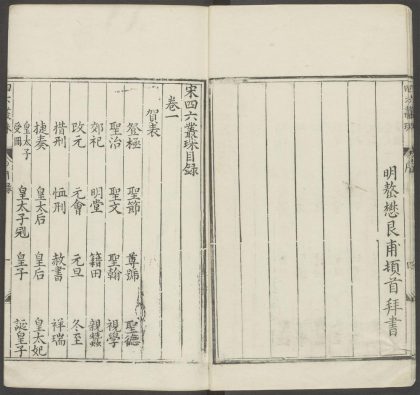 明嶅懋良甫頓首拜書
宋四六叢珠目錄
卷一
賀表
登極 聖節 尊號 聖德
聖治 聖文 聖翰 視學
郊祀 明堂 籍田 親蠶
改元 元會 元旦 冬至
措刑 恤刑 赦書 祥瑞
捷奏 皇太后 皇后 皇太妃
皇太子受冊 皇太子冠 皇子 誕皇子